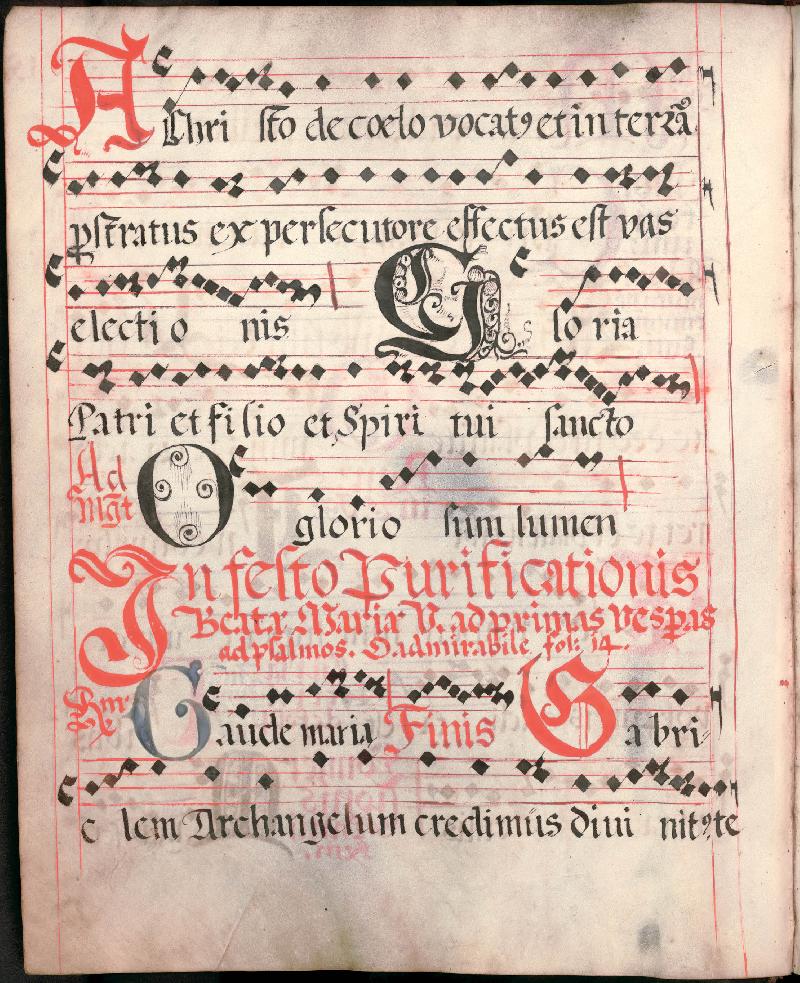 A Christo de coelo vocatꝰ et in terrā
ꝓstratus ex persecutore effectus est vas
electio nis Gloria
Patri et filio et Spiri tui sancto
Ad Mḡt O glorio sum lumen
In festo Purificationis
Beatæ Mariæ V. ad primas vesꝑas
ad psalmos. O admirabile fol: 14.
Gaude maria Finis Gabri-
e lem Archangelum credimus diui nitꝰ te